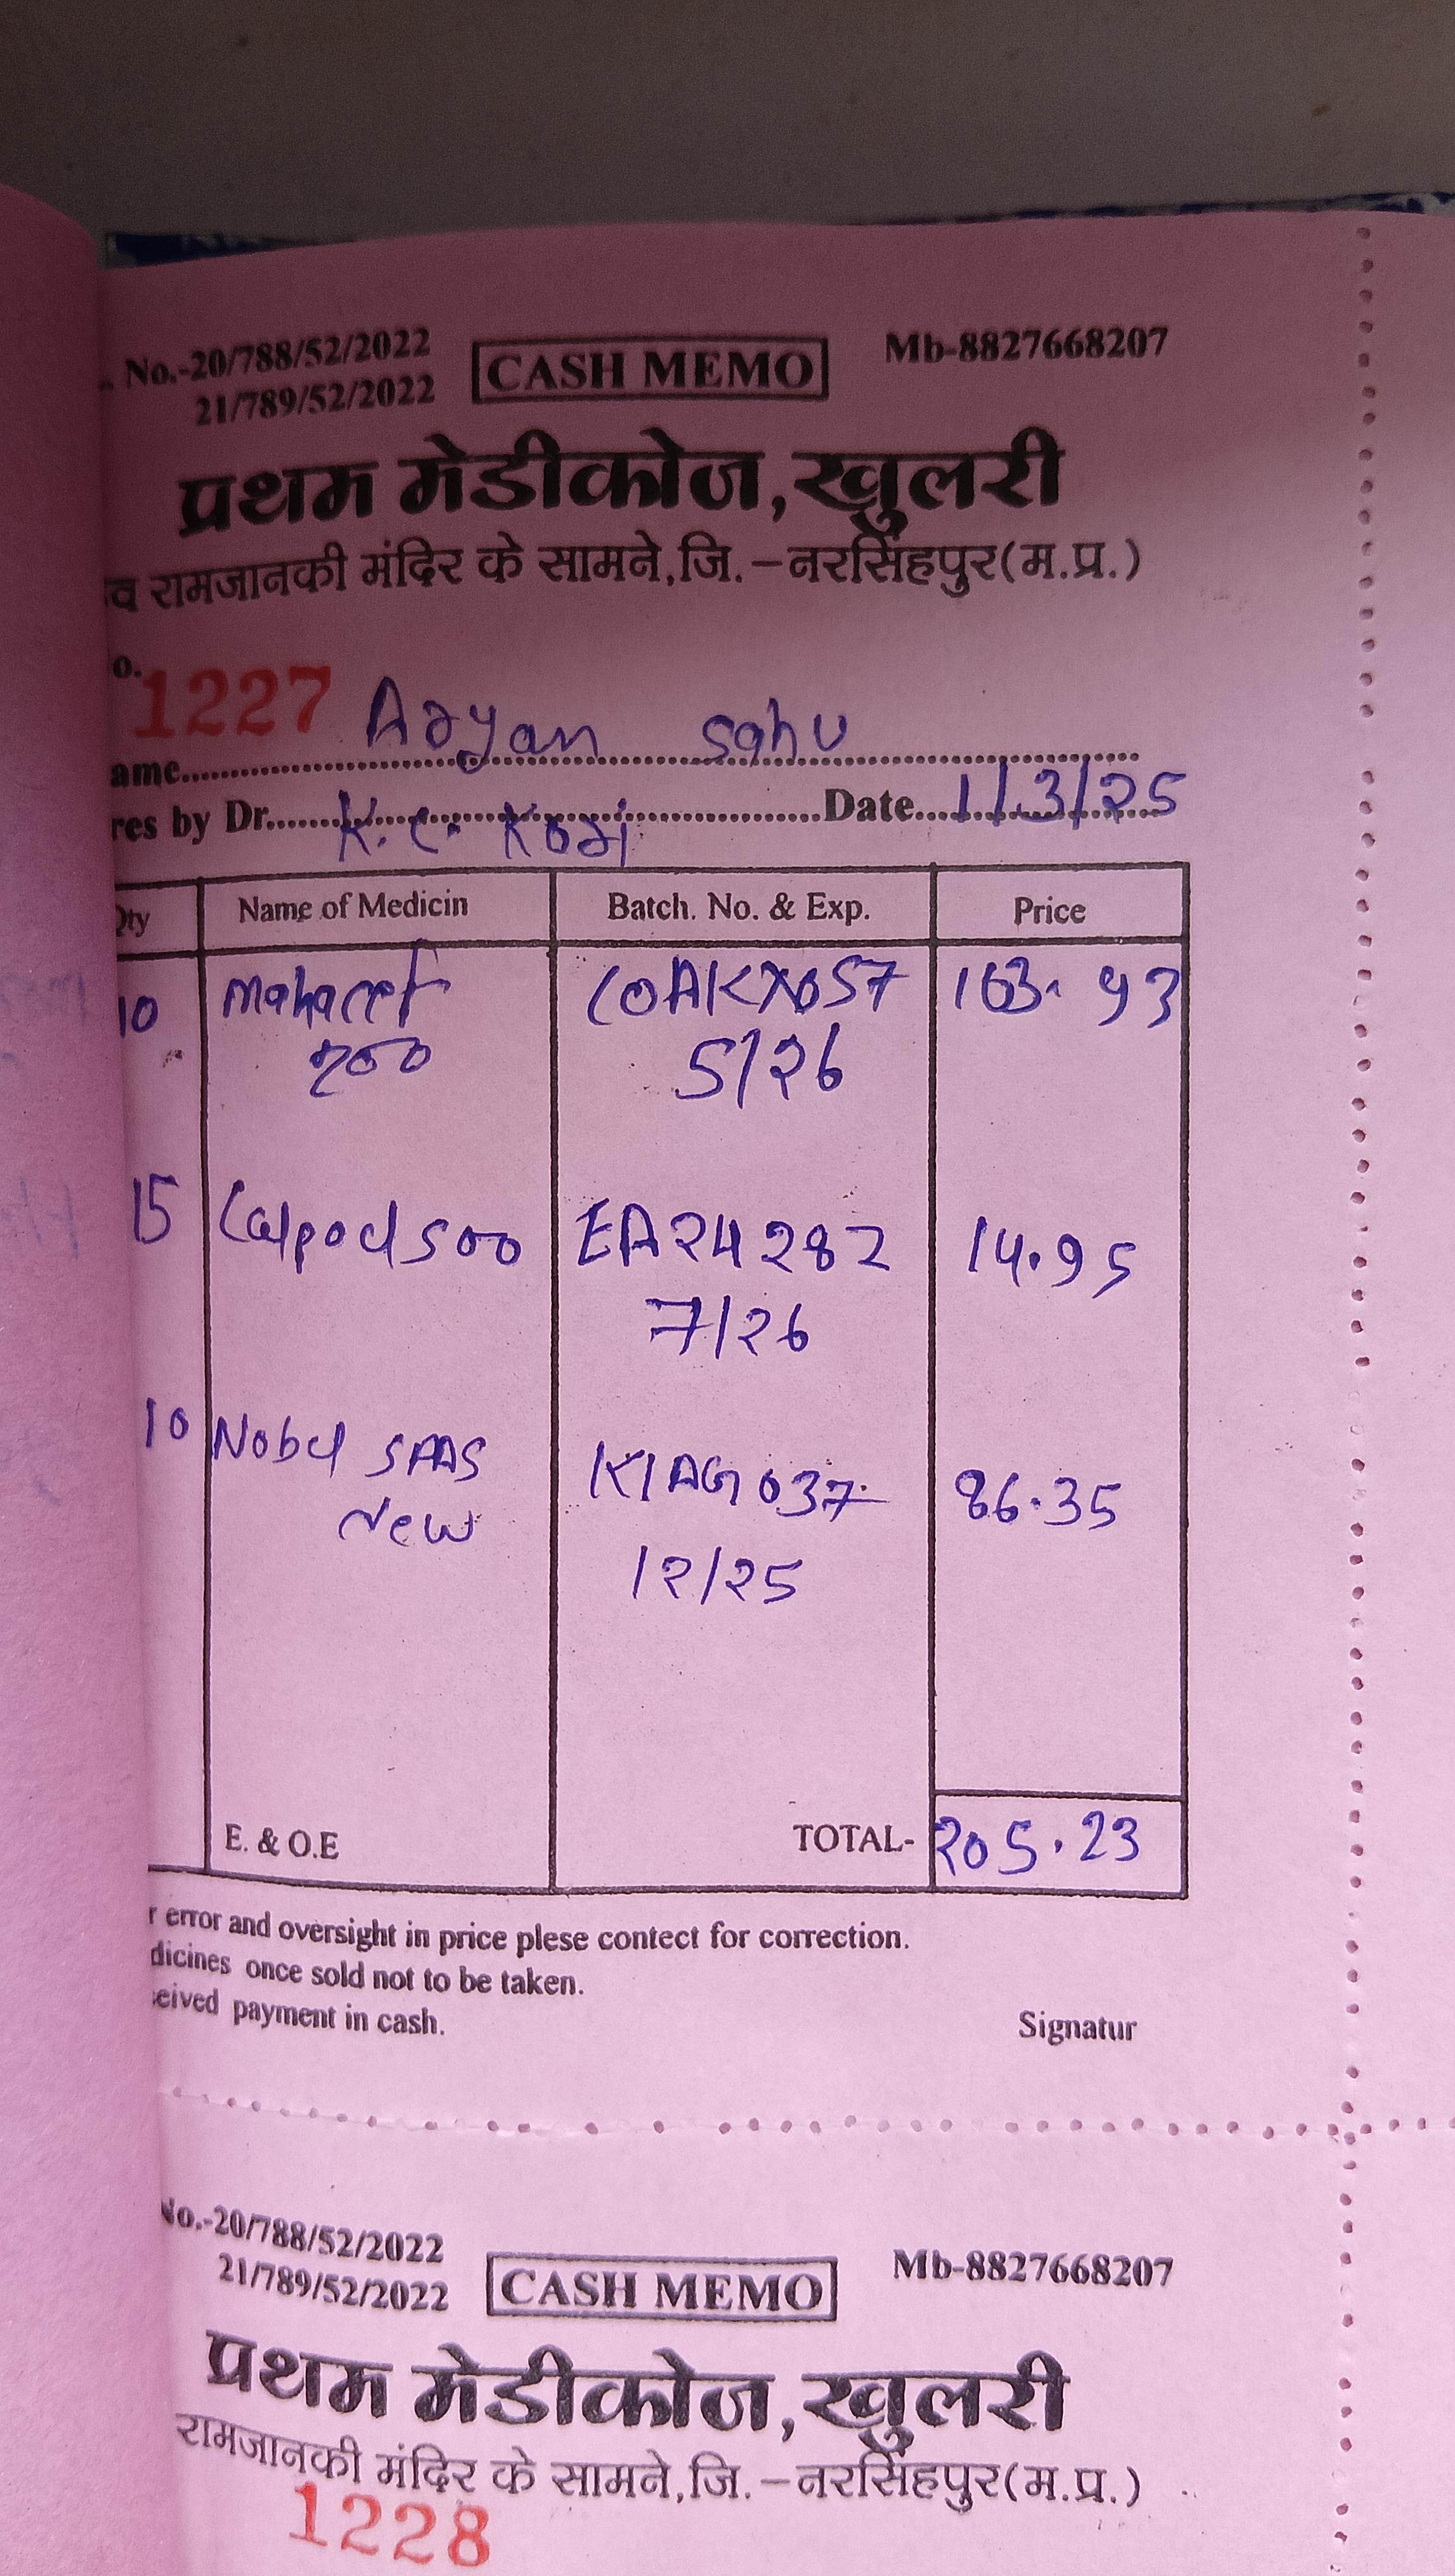 No.-20/788/52/2022 CASH MEMO Mb-8827668207
21/789/52/2022
प्रथम मेडीकोज, खुलरी
व रामजानकी मंदिर के सामने, जि. – नरसिंहपुर (म.प्र.)
o. 1227
ame Aryan Sahu
res by Dr. K. C. Kori Date 1/3/25
Qty Name of Medicin Batch. No. & Exp. Price
10 Mahacef 163.93
200 5/26
15 Calpod 500 EA24282 14.95
7/26
10 Nobel SPAS KIAG037 86.35
New 12/25
E. & O.E TOTAL- 205.23
r error and oversight in price plese contect for correction.
dicines once sold not to be taken.
eived payment in cash.
Signatur
No.-20/788/52/2022 CASH MEMO Mb-8827668207
21/789/52/2022
प्रथम मेडीकोज, खुलरी
रामजानकी मंदिर के सामने, जि. – नरसिंहपुर (म.प्र.)
1228